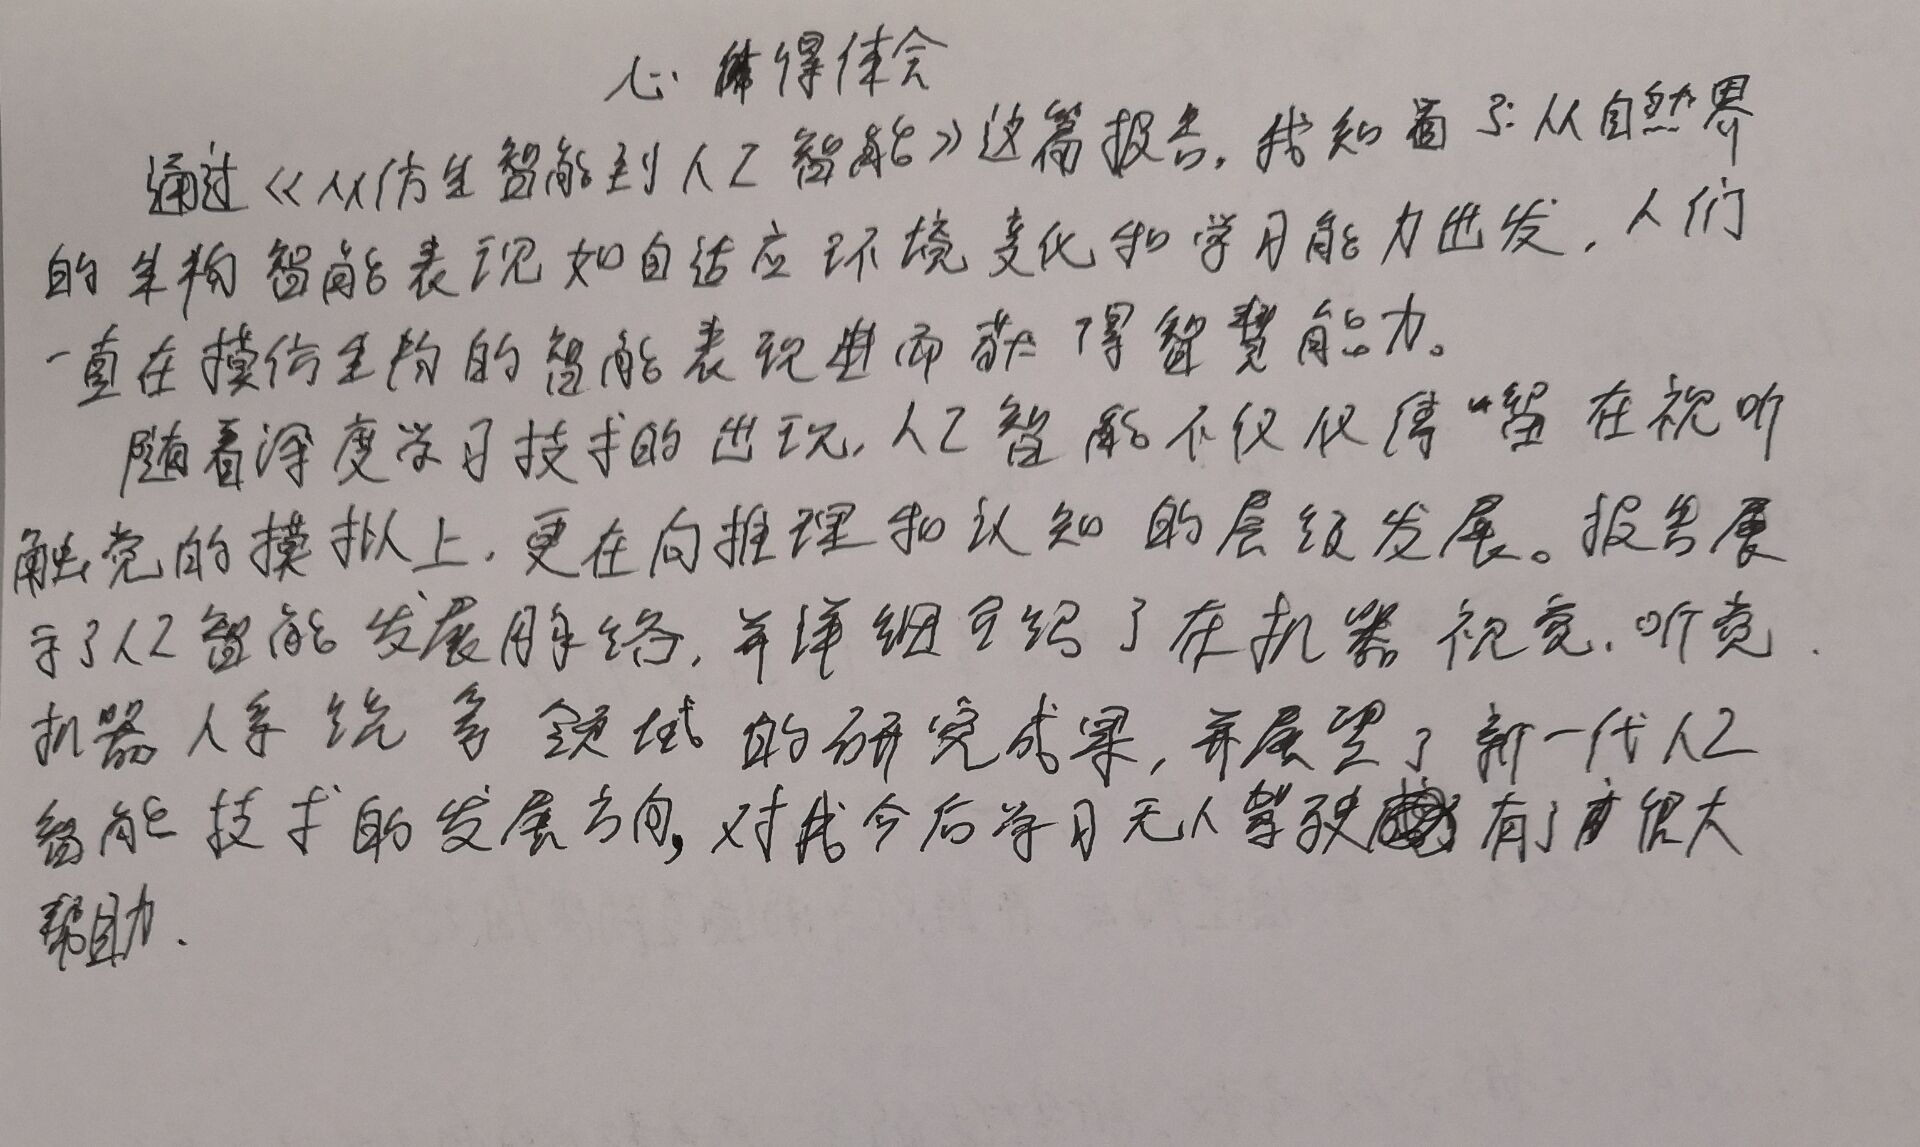 心得体会
通过《从仿生智能到人工智能》这篇报告,我知道了:从自然界
的生物智能表现如自适应环境变化和学习能力出发,人们
一直在摸仿生物的智能表现进而获得智慧能力。
随着深度学习技术的出现,人工智能不仅仅停留在视听
触觉的摸拟上,更在向推理和认知的层级发展。报告展
示了人工智能发展脉络,并详细介绍了在机器视觉、听觉、
机器人系统等领域的研究成果,并展望了新一代人工
智能技术的发展方向,对我今后学习无人驾驶有了很大
帮助.